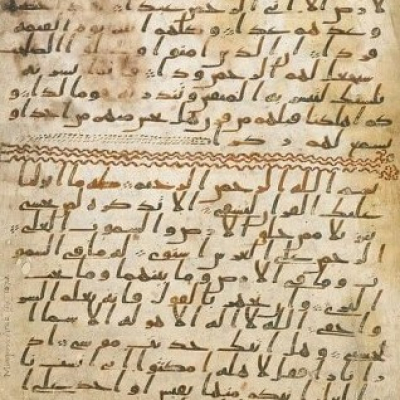 لارض الا اتى الرحمن عبدا
وعدهم عدا وكلهم اتيه يوم القيمة
فردا ان الذين امنوا وعملوا الصلحت
سيجعل لهم الرحمن ودا فانما يسرنه
بلسنك لتبشر به المتقين وتنذر به قوما لدا و
كم اهلكنا قبلهم من قرن هل تحس منهم من احد او
تسمع لهم ركزا
بسم الله الرحمن الرحيم طه ما انزلنا
عليك القرن لتشقى الا تذكرة لمن يخشى
تنزيلا ممن خلق الارض والسموت العلى
الرحمن على العرش استوى له ما في السمو
ت وما في الارض وما بينهما وما تحت
الثرى وان تجهر بالقول فانه يعلم السر
واخفى الله لا اله الا هو له الاسما ا
لحسنى وهل اتيك حديث موسى اذ
را نارا فقل لاهله امكثوا اني انست نا
را لعلي اتيكم منها بقبس او اجد على ا